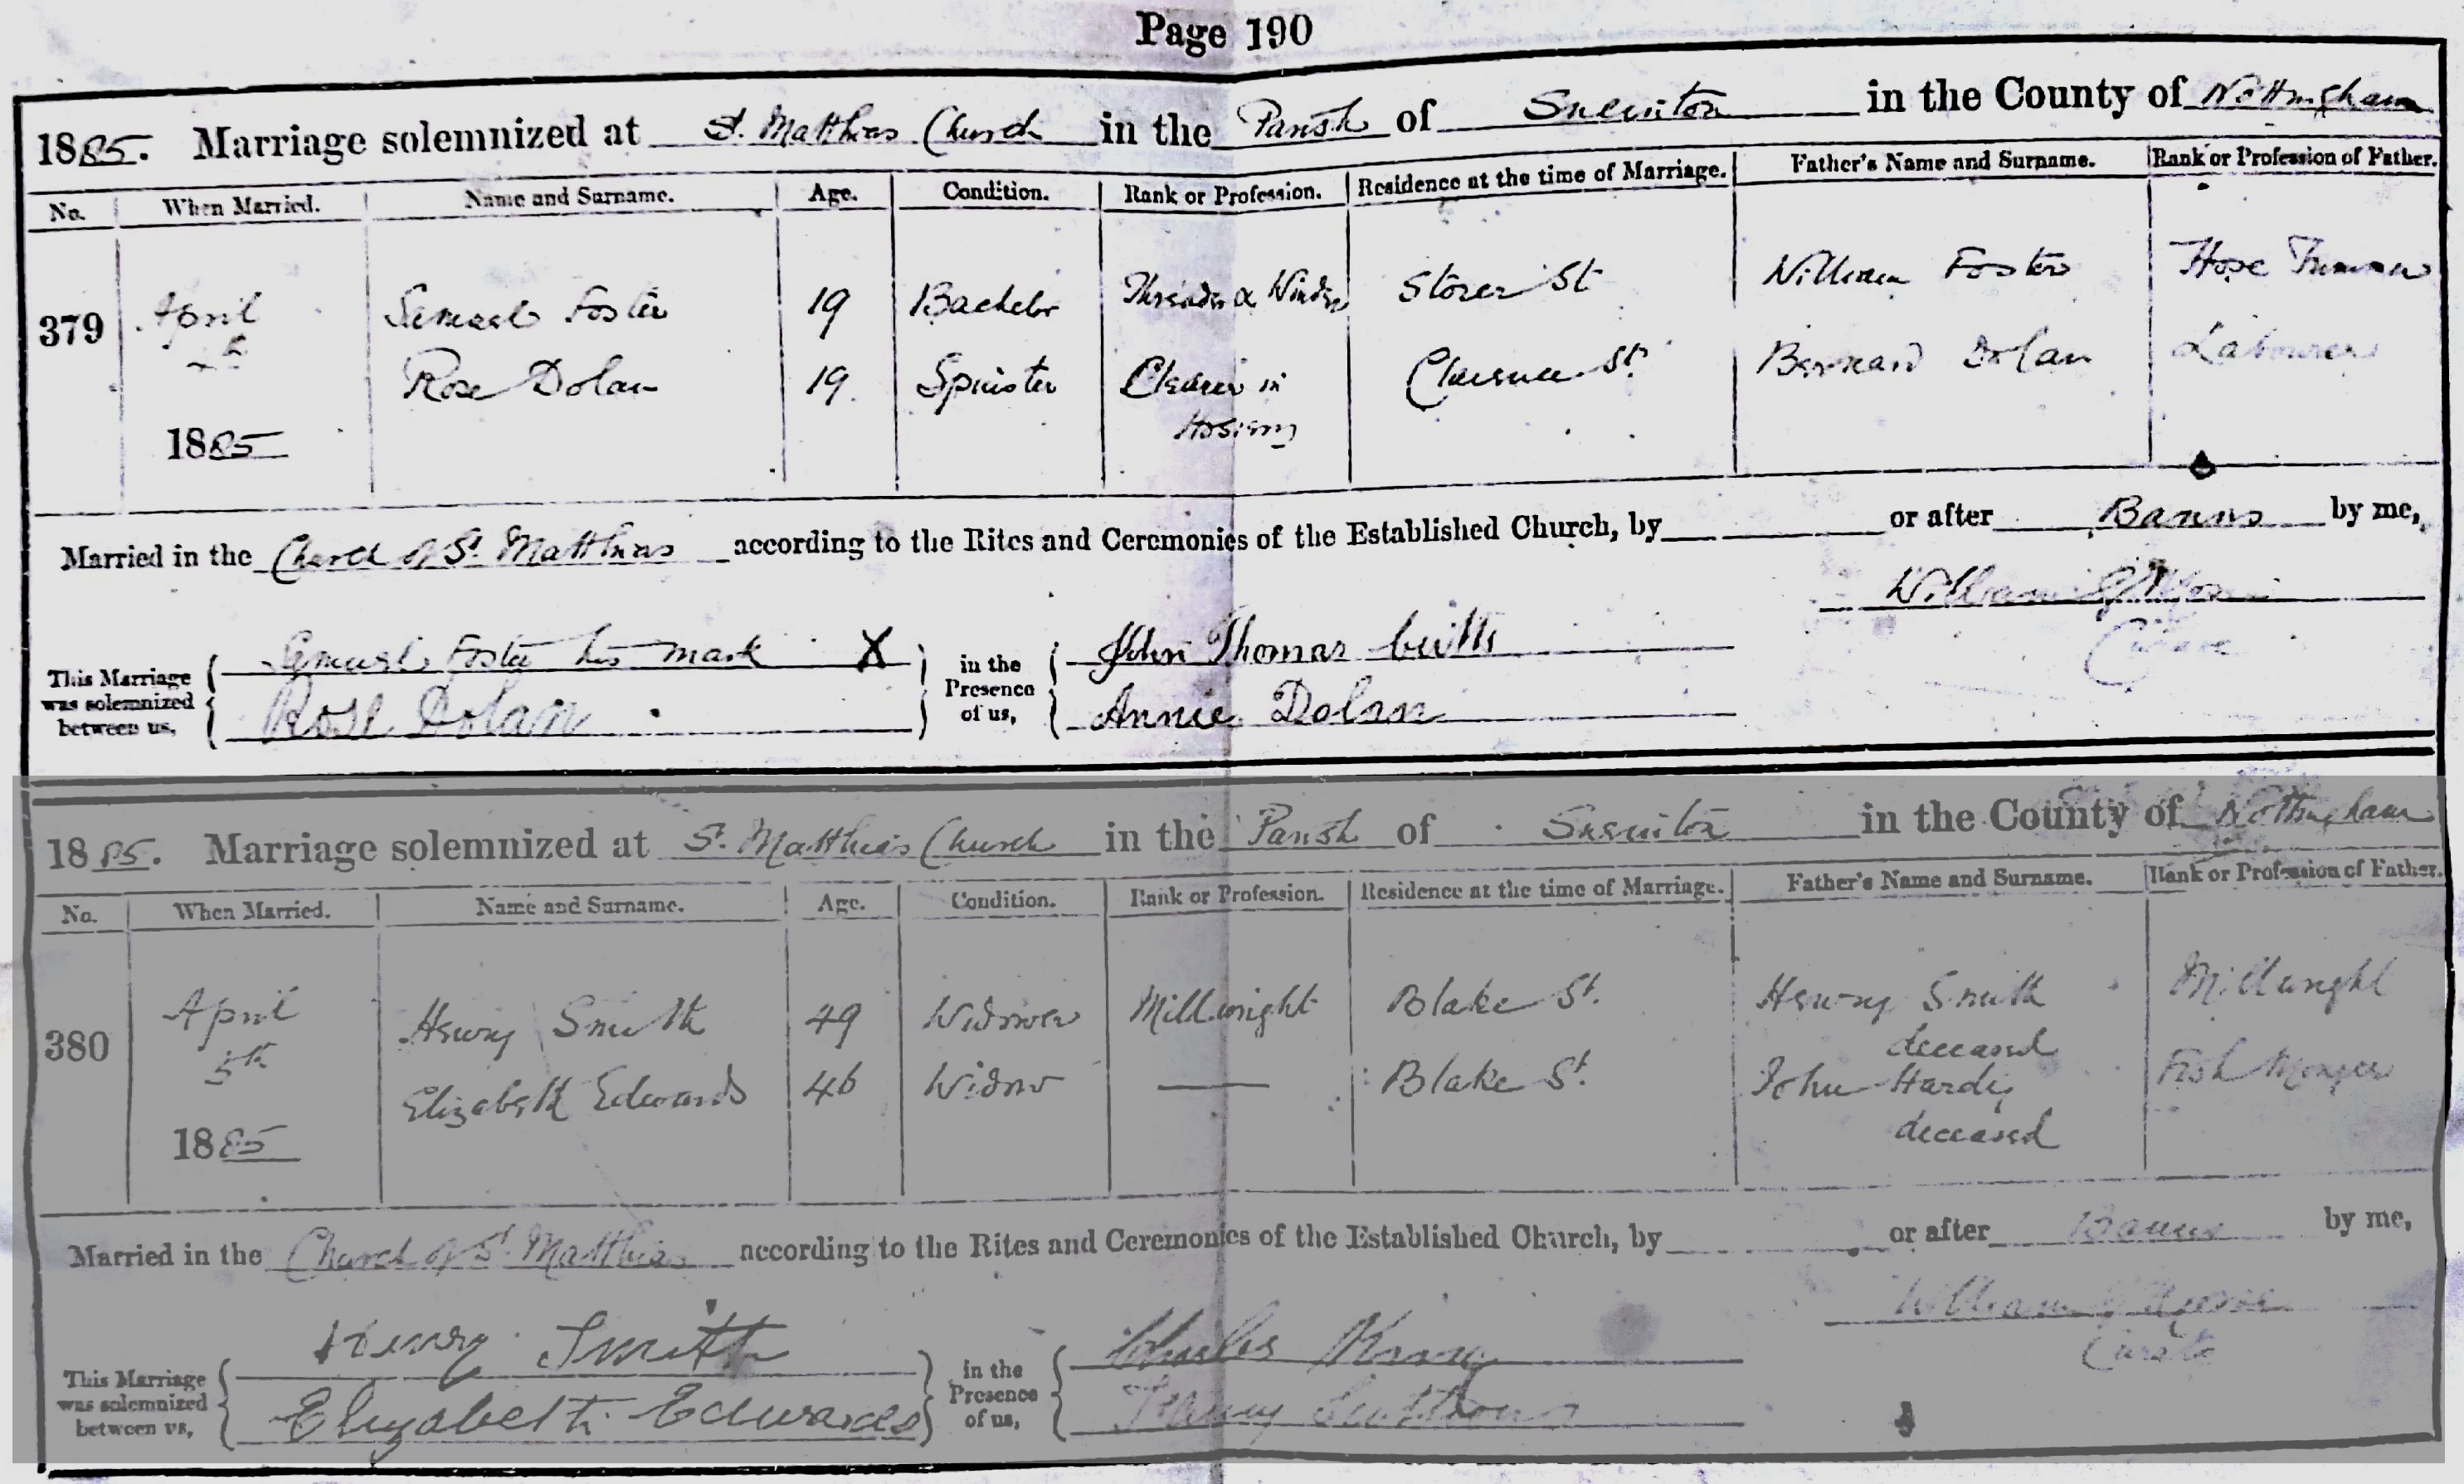 Page 190
1885. Marriage solemnized at St. Matthias Church in the Parish of Sneinton in the County of Nottingham
No. When Married. Name and Surname. Age. Condition. Rank or Profession. Residence at the time of Marriage. Father's Name and Surname. Rank or Profession of Father.
379 April Samuel Foster 19 Bachelor Threader & Winder Storer St William Foster
Rose Dolan 19 Spinster Clearer in Clarence St. Bernard Dolan Labourer
Hosiery
1885
Married in the Church of St. Matthias according to the Rites and Ceremonies of the Established Church, by or after Banns by me,
William
Curate
This Marriage was solemnized between us, Samuel Foster his mark X in the Presence of us, John Thomas
Rose Dolan Annie Dolan
1885. Marriage solemnized at St. Matthias Church in the Parish of Sneinton in the County of Nottingham
No. When Married. Name and Surname. Age. Condition. Rank or Profession. Residence at the time of Marriage. Father's Name and Surname. Rank or Profession of Father.
380 April Henry Smith 49 Widower Millwright Blake St. Henry Smith Millwright
deceased
5th Elizabeth Edwards 46 Widow Blake St. John Hardy Fish Monger
deceased
1885
Married in the Church of St. Matthias according to the Rites and Ceremonies of the Established Church, by or after Banns by me,
William
Curate
This Marriage was solemnized between us, Henry Smith in the Presence of us, Charles
Elizabeth Edwards